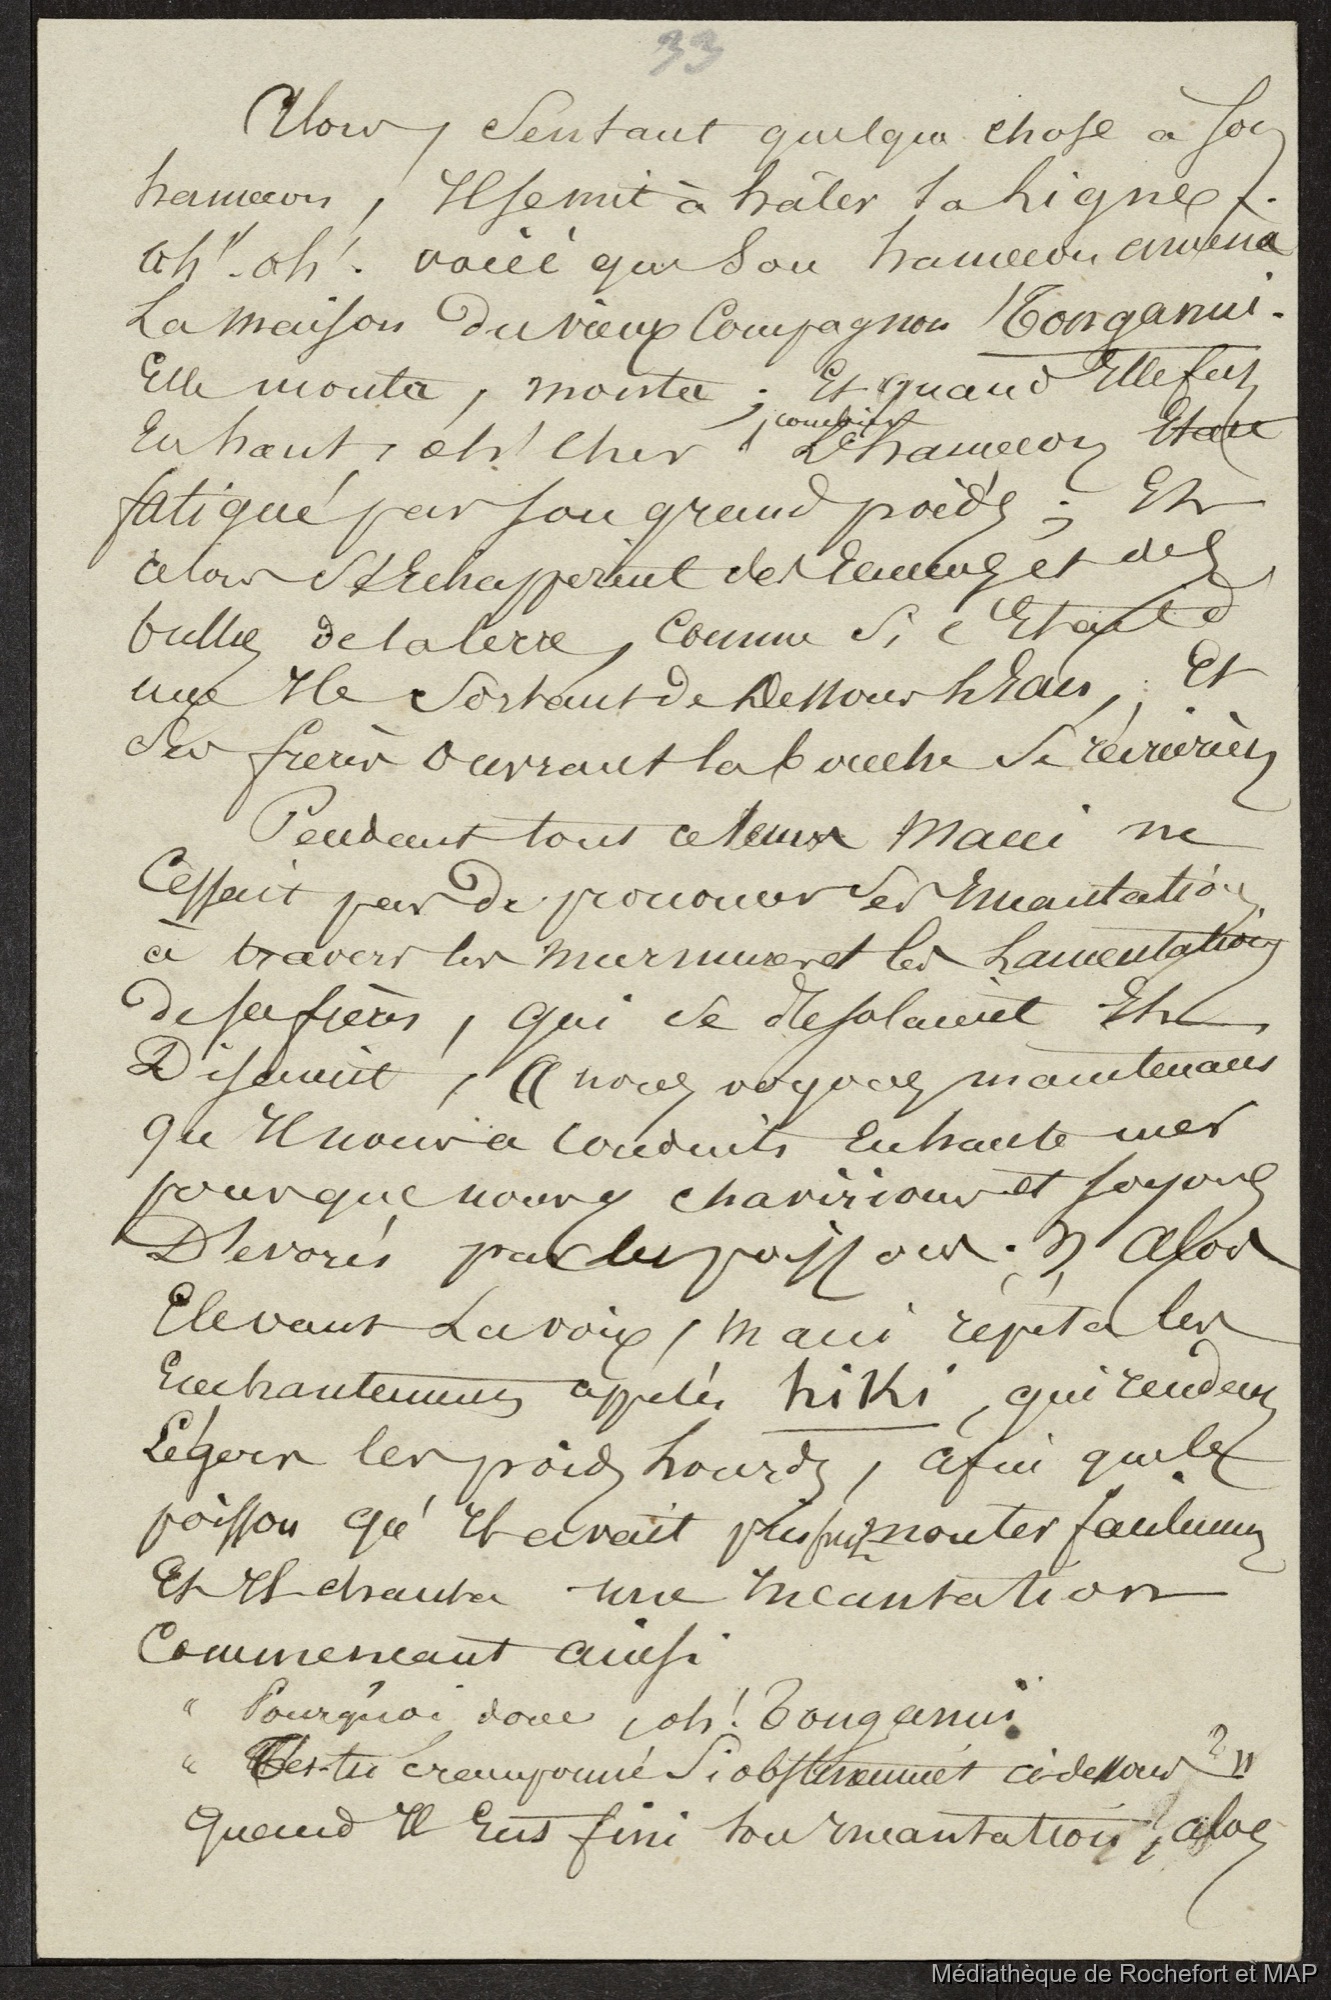 33
Alors, sentant quelque chose à son
hameçon, Il se mit à hâler sa ligne.
ah! oh! voici que son hameçon amena
La maison du vieux Compagnon Tonganui.
Elle monta, monta ; Et quand Elle fut
En haut, oh! cher, combien
L'hameçon Etait
fatigué par son grand poids ; Et
alors s'Echappèrent des Ecumes et des
bulles de la terre, Comme si c'Etait d'
une Ile sortant de Dessous l'Eau, ; Et
Ses frères ouvrant la bouche se récrièrent
Pendant tout ce temps Maui ne
Cessait pas De prononcer Ses Incantations
à travers les murmures et les Lamentations
De ses frères, qui se désolaient Et
Disaient, « nous voyons maintenant
qu'Il nous a conduits En haute mer
pour que nous y chavirions et soyons
Dévorés par les poissons. » Alors
Elevant La voix, Maui répéta les
Enchantements appelés hiki, qui rendent
Légers les poids Lourds, afin que le
poisson qu'Il avait pris put monter facilement
Et Il chanta une Incantation
Commencant ainsi
" Pourquoi donc, oh! Tonganui
" Tes-tu cramponné Si obstinément ci-dessous ? "
Quand Il Eut fini son Incantation, alors
Médiathèque de Rochefort et MAP